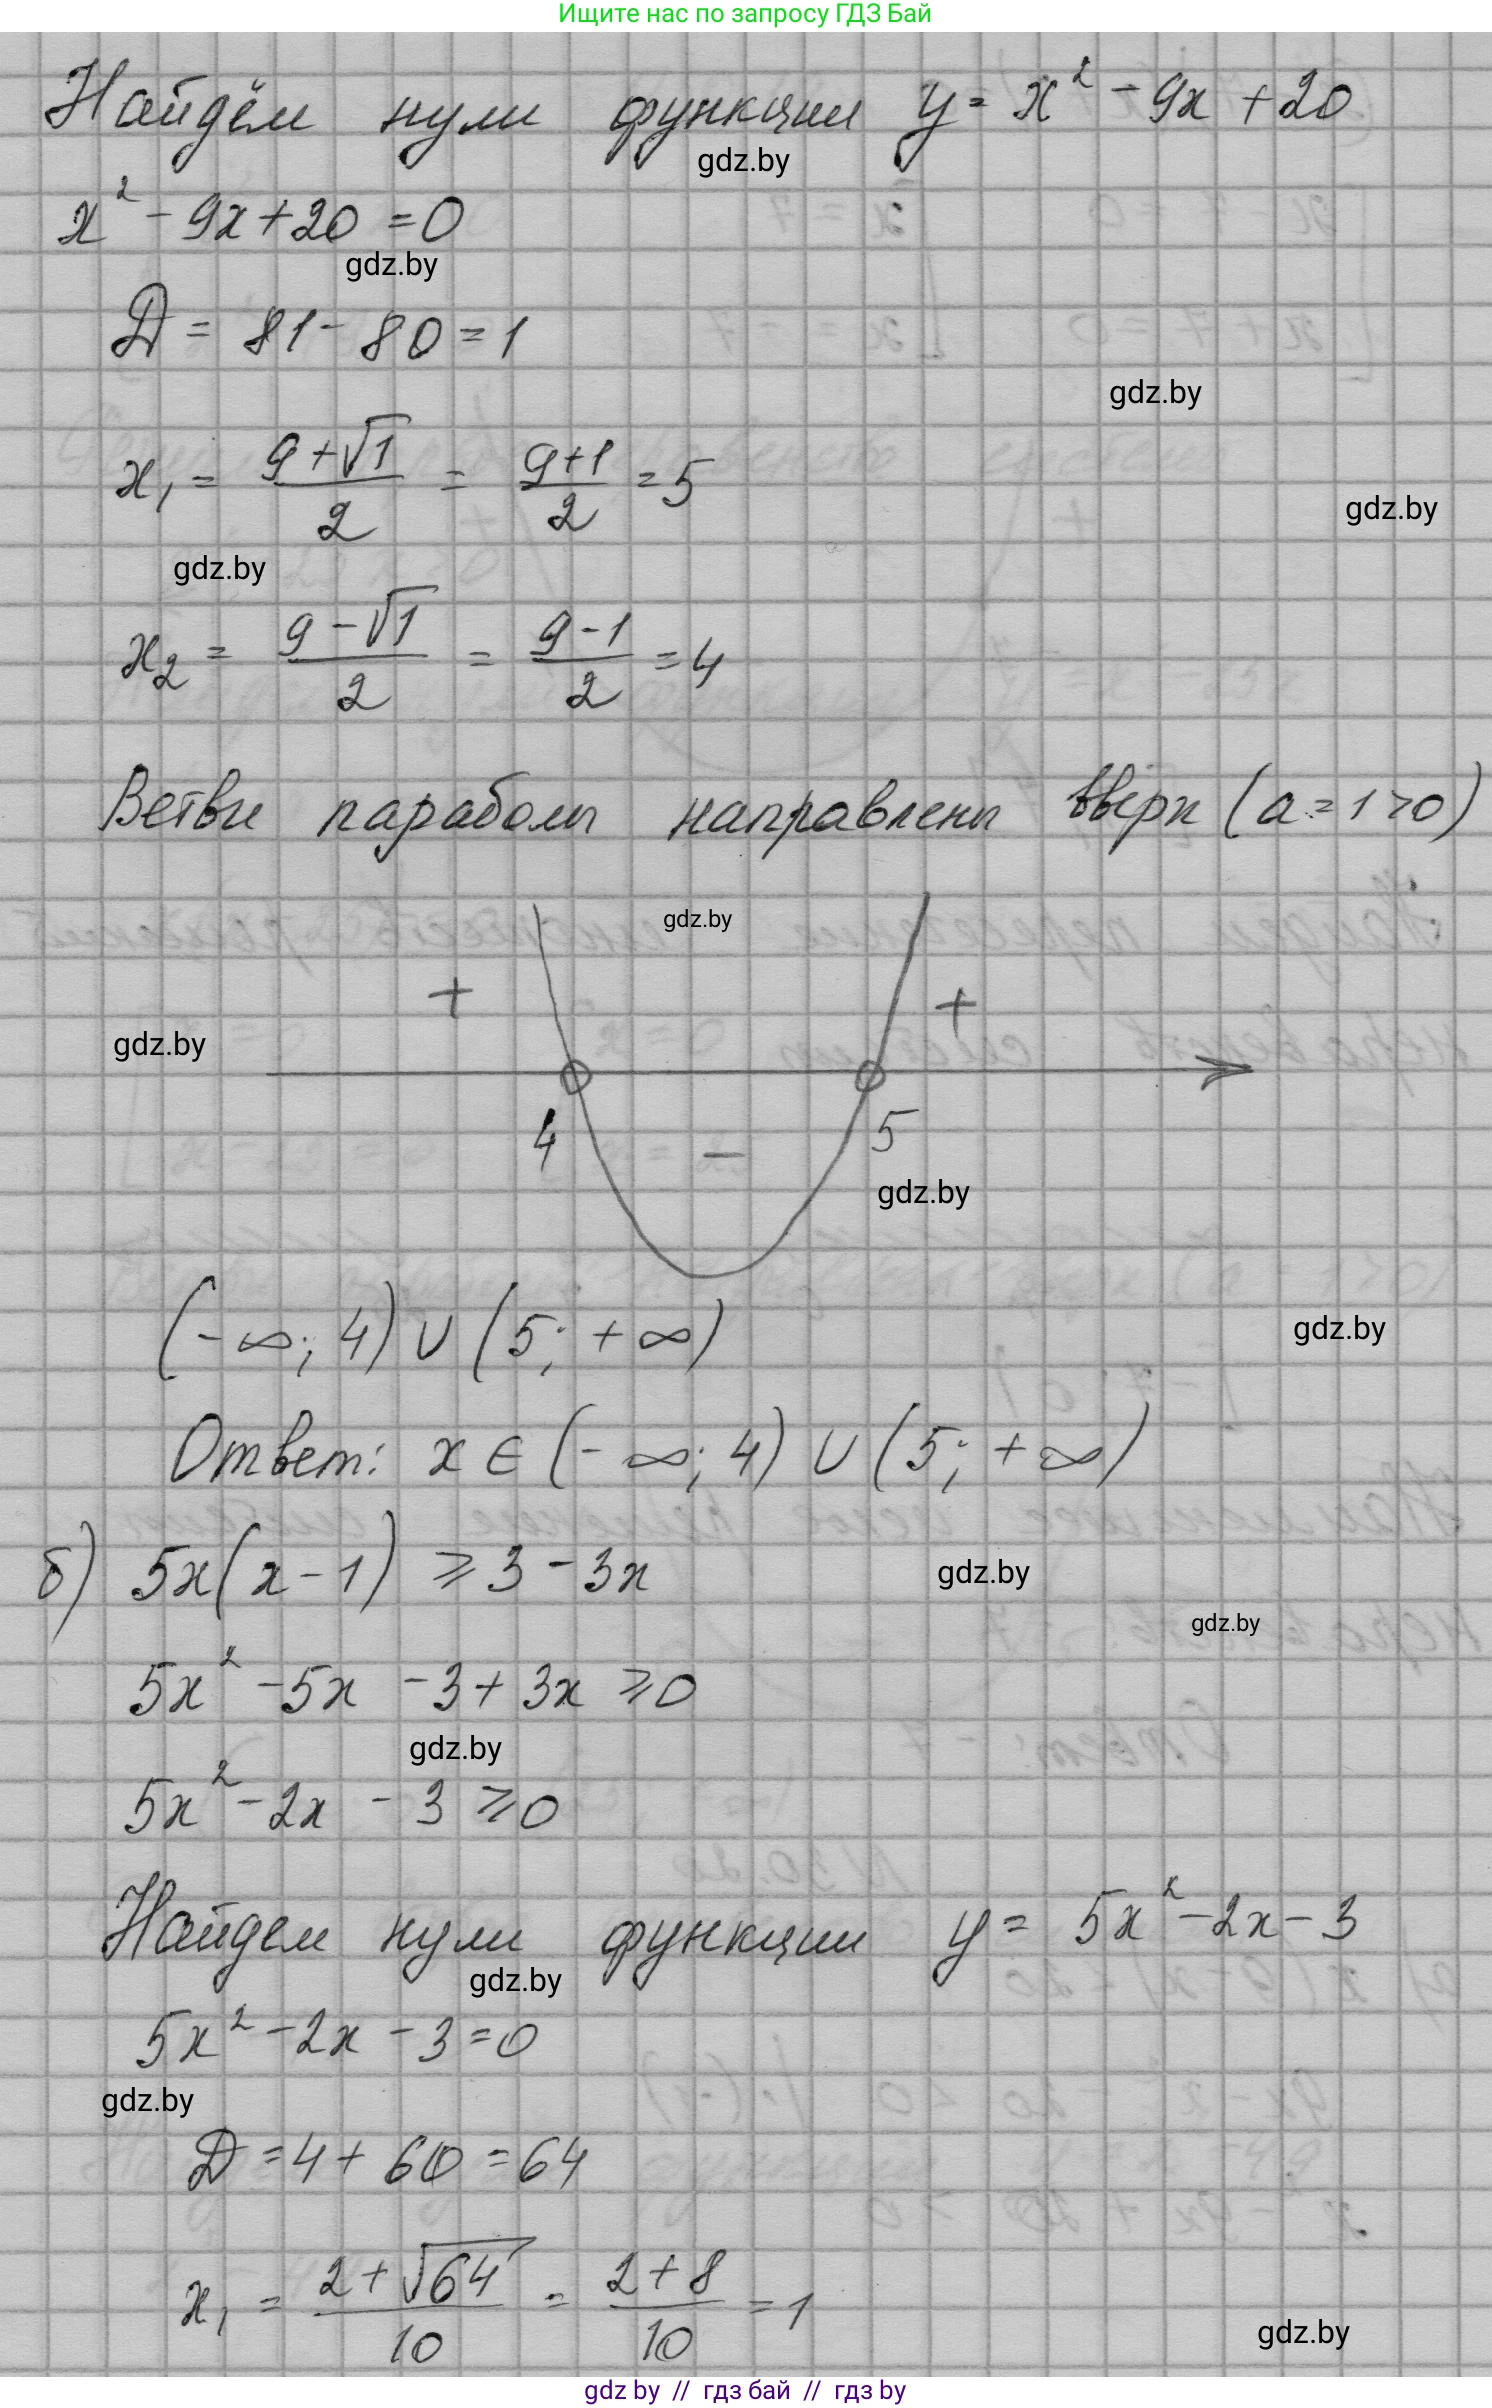 Ищите нас по запросу ГДЗ Бай
Найдём нули функции y = x² - 9x + 20
gdz.by
x² - 9x + 20 = 0
gdz.by
Д = 81 - 80 = 1
gdz.by
x₁ = (9 + √1)/2 = (9 + 1)/2 = 5
gdz.by
gdz.by
x₂ = (9 - √1)/2 = (9 - 1)/2 = 4
Ветви параболы направлены вверх (a = 1 > 0)
gdz.by
+ +
gdz.by
4 - 5
gdz.by
(-∞; 4) ∪ (5; +∞)
gdz.by
Ответ: x ∈ (-∞; 4) ∪ (5; +∞)
б) 5x(x - 1) ⩾ 3 - 3x
gdz.by
gdz.by
5x² - 5x - 3 + 3x ⩾ 0
gdz.by
5x² - 2x - 3 ⩾ 0
Найдем нули функции y = 5x² - 2x - 3
gdz.by
5x² - 2x - 3 = 0
gdz.by
Д = 4 + 60 = 64
x₁ = (2 + √64)/10 = (2 + 8)/10 = 1
gdz.by
gdz by // гдз бай // гдз by